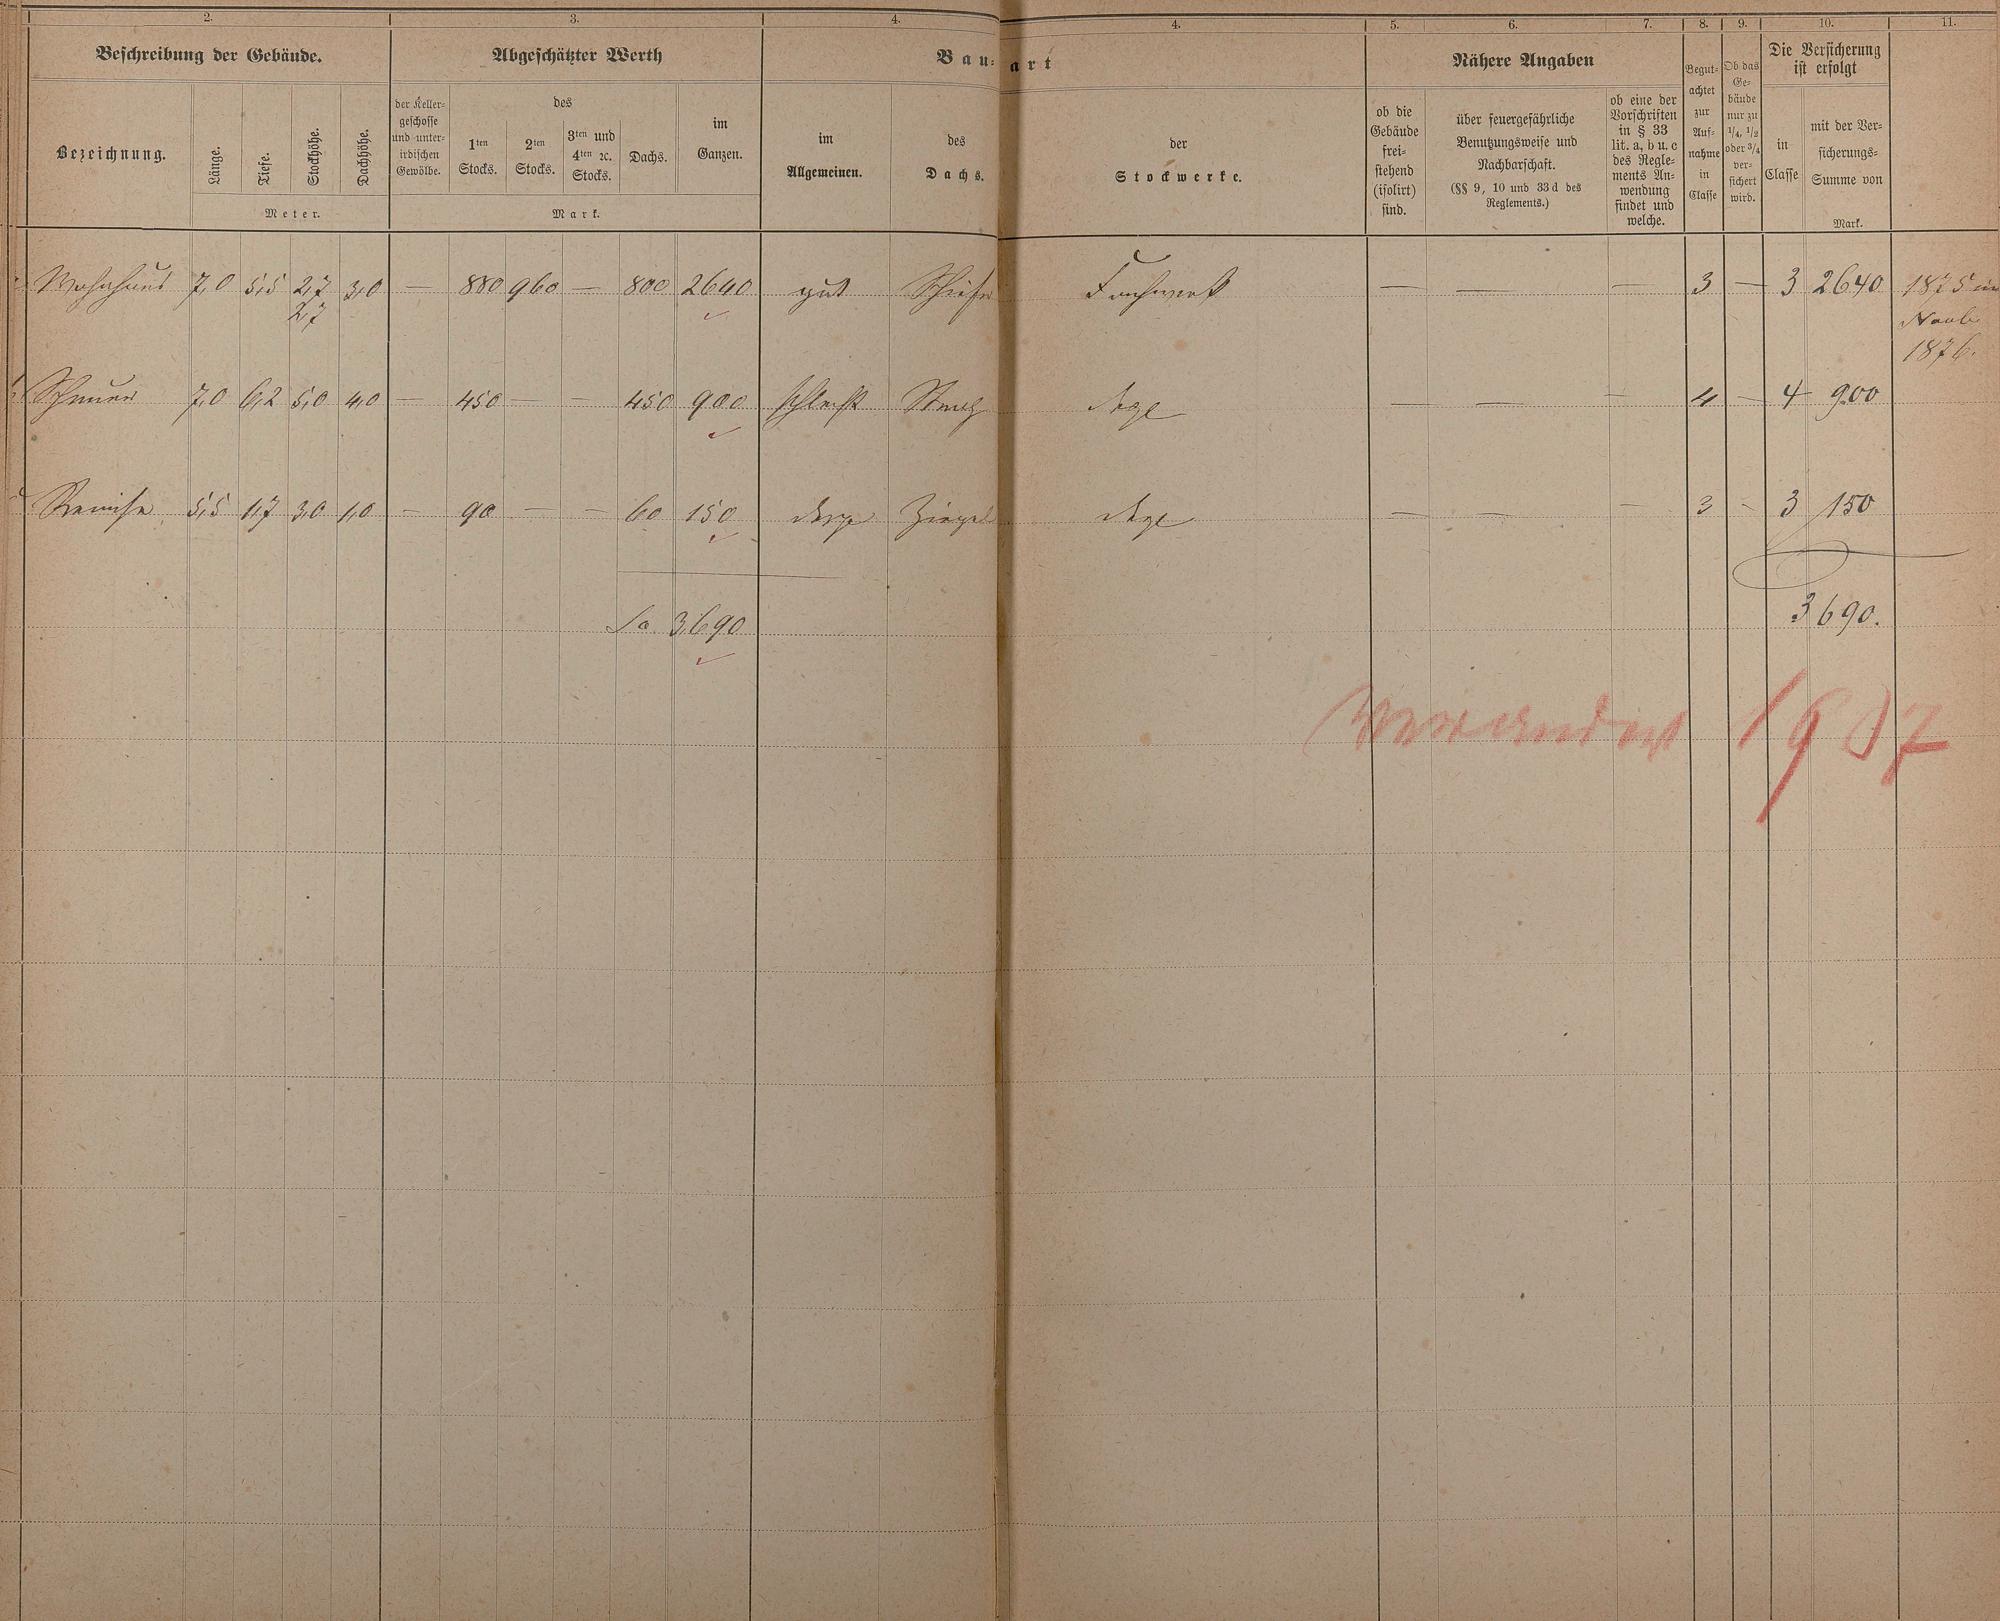 2. 3. 4. 4. 5. 6. 7. 8. 9. 10. 11.
Beschreibung der Gebäude. Abgeschätzter Werth Bau- art Nähere Angaben Die Versicherung ist erfolgt
Bezeichnung.
Länge.
Tiefe.
Stockhöhe.
Dachhöhe.
Meter.
der Keller-
geschosse
und unter-
irdischen
Gewölbe.
des
1ten
Stocks.
2ten
Stocks.
3ten und
4ten ꝛc.
Stocks.
Dachs.
im
Ganzen.
Mark.
im
Allgemeinen.
des
Dachs.
der
Stockwerke.
ob die
Gebäude
frei-
stehend
(isolirt)
sind.
über feuergefährliche
Benutzungsweise und
Nachbarschaft.
(§§ 9, 10 und 33d des
Reglements.)
ob eine der
Vorschriften
in § 33
lit. a, b u. c
des Regle-
ments An-
wendung
findet und
welche.
Begut-
achtet
zur
Auf-
nahme
in
Classe
Ob das
Ge-
bäude
nur zu
1/4, 1/2
oder 3/4
ver-
sichert
wird.
in
Classe
mit der Ver-
sicherungs-
Summe von
Mark.
Wohnhaus 7,0 5,5 2,7 3,0 — 880 960 — 800 2640 gut Schiefer Fachwerk — — — 3 — 3 2640 1875
2,7
1876.
Scheuer 7,0 6,2 5,0 4,0 — 450 — — 450 900 schlecht Stroh dsgl — — — 4 — 4 900
Remise 5,5 1,7 3,0 1,0 — 90 — — 60 150 dsgl Ziegel dsgl — — — 3 - 3 150
Sa 3,690 3690.
Verändert 1907